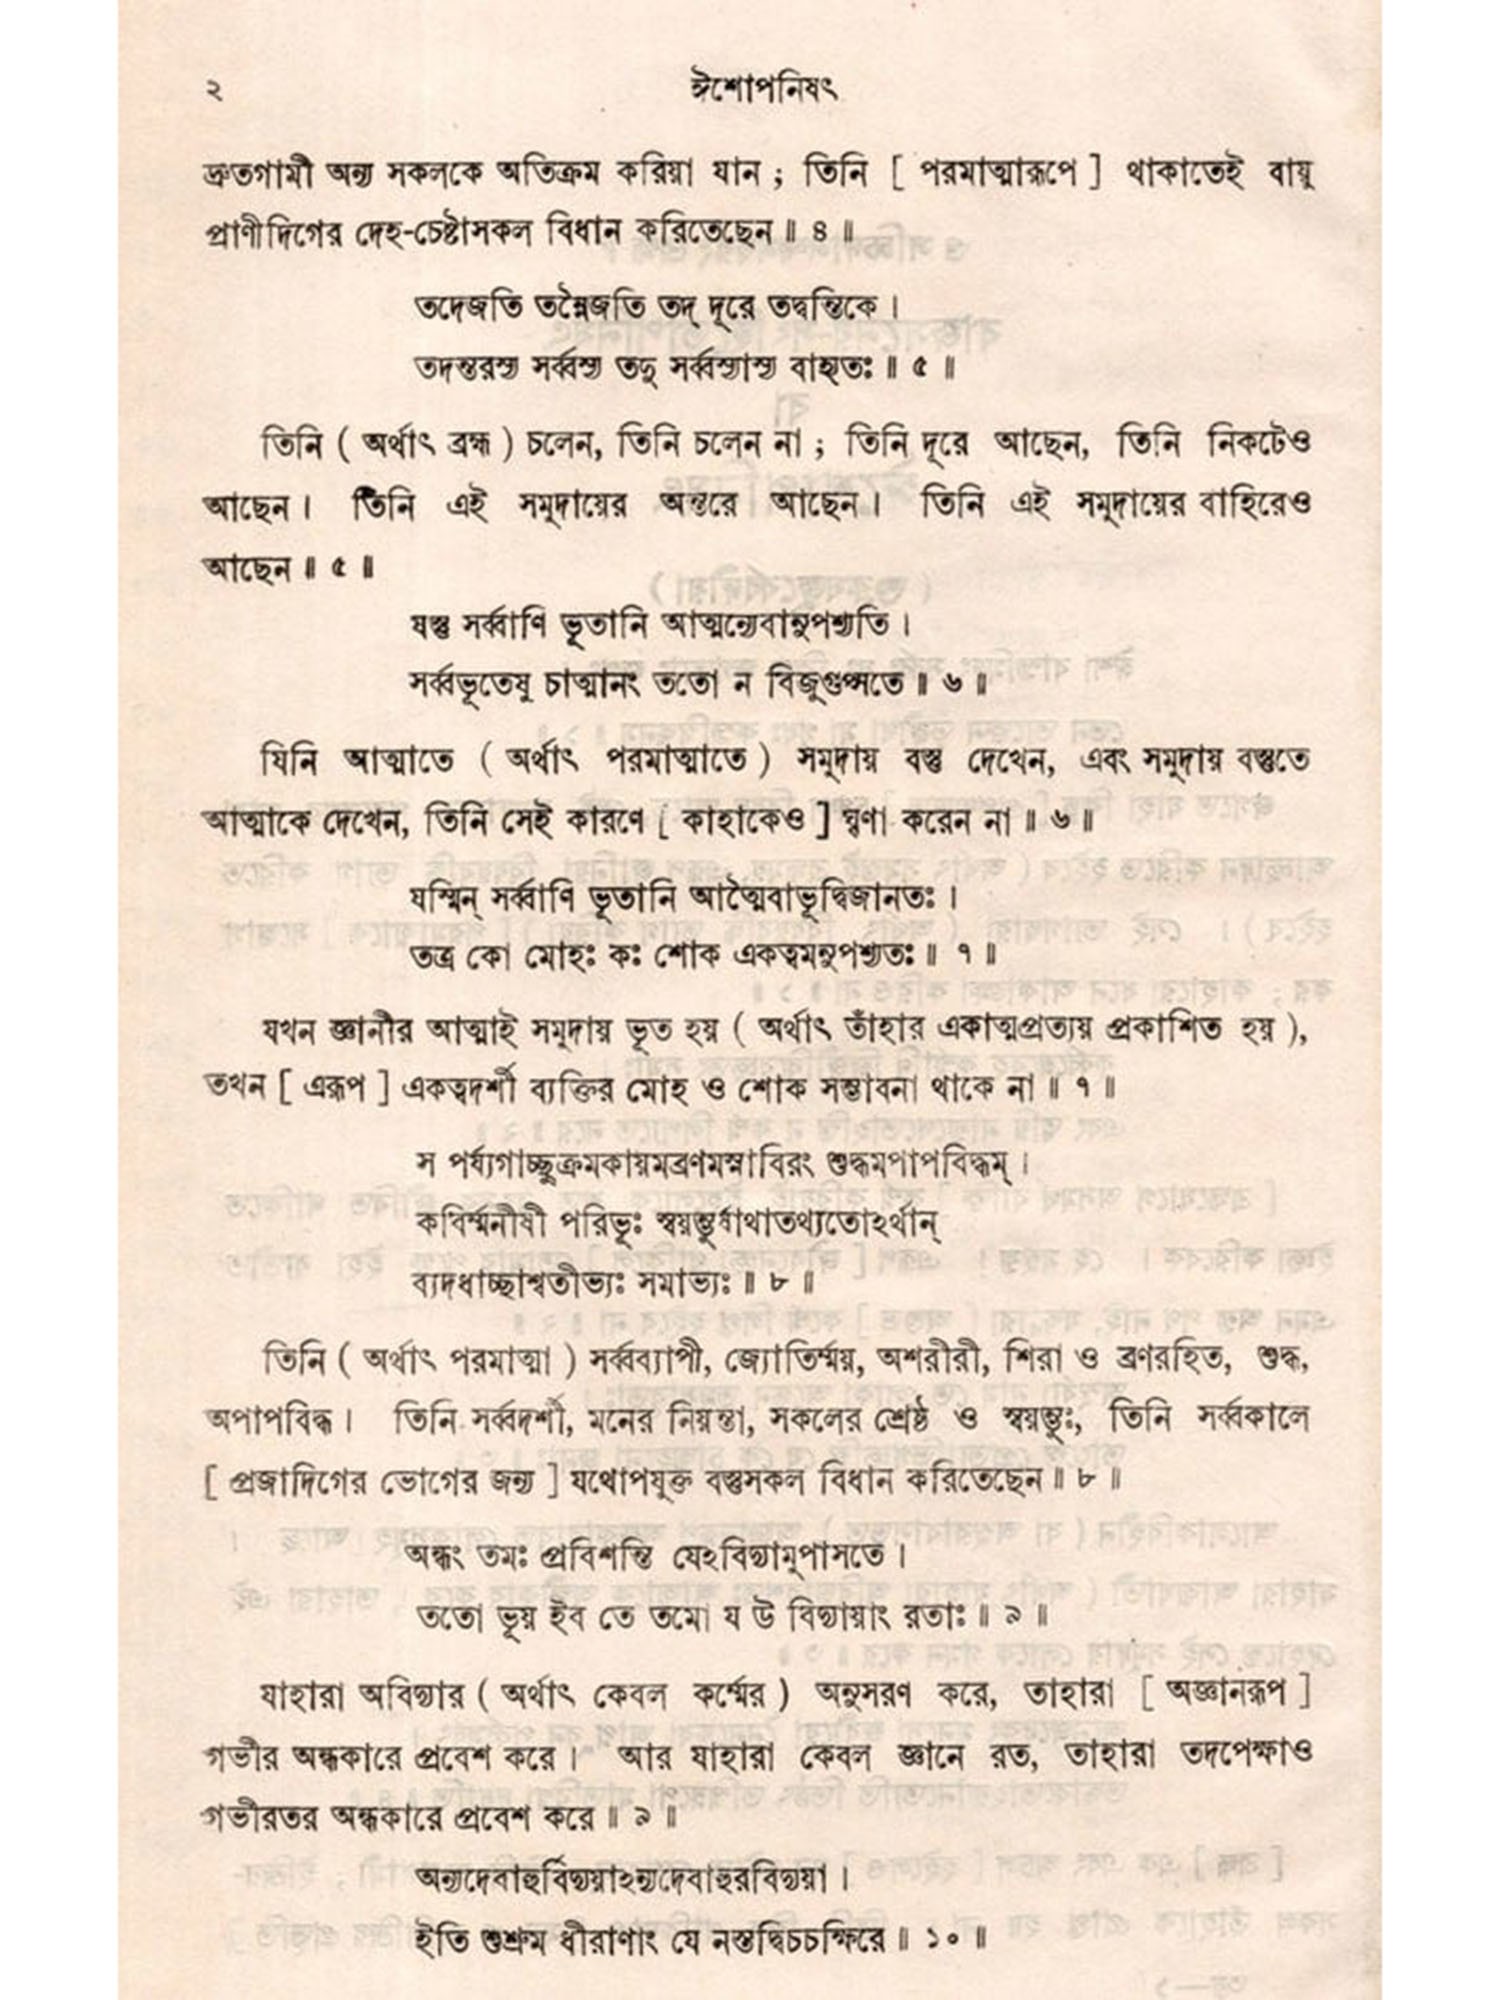 ২ ঈশোপনিষৎ
দ্রুতগামী অন্য সকলকে অতিক্রম করিয়া যান ; তিনি [ পরমাত্মারূপে ] থাকাতেই বায়ু
প্রাণীদিগের দেহ-চেষ্টাসকল বিধান করিতেছেন ॥ ৪ ॥
তদেজতি তন্নৈজতি তদ্ দূরে তদ্বন্তিকে ।
তদন্তরস্য সর্ব্বস্য তদু সর্ব্বস্যাস্য বাহ্যতঃ ॥ ৫ ॥
তিনি ( অর্থাৎ ব্রহ্ম ) চলেন, তিনি চলেন না ; তিনি দূরে আছেন, তিনি নিকটেও
আছেন । তিনি এই সমুদায়ের অন্তরে আছেন । তিনি এই সমুদায়ের বাহিরেও
আছেন ॥ ৫ ॥
যস্তু সর্ব্বাণি ভূতানি আত্মন্যেবানুপশ্যতি ।
সর্ব্বভূতেষু চাত্মানং ততো ন বিজুগুপ্সতে ॥ ৬ ॥
যিনি আত্মাতে ( অর্থাৎ পরমাত্মাতে ) সমুদায় বস্তু দেখেন, এবং সমুদায় বস্তুতে
আত্মাকে দেখেন, তিনি সেই কারণে [ কাহাকেও ] ঘৃণা করেন না ॥ ৬ ॥
যস্মিন্ সর্ব্বাণি ভূতানি আত্মৈবাভূদ্বিজানতঃ ।
তত্র কো মোহঃ কঃ শোক একত্বমনুপশ্যতঃ ॥ ৭ ॥
যখন জ্ঞানীর আত্মাই সমুদায় ভূত হয় ( অর্থাৎ তাঁহার একাত্মপ্রত্যয় প্রকাশিত হয় ),
তখন [ এরূপ ] একত্বদর্শী ব্যক্তির মোহ ও শোক সম্ভাবনা থাকে না ॥ ৭ ॥
স পর্য্যগাচ্ছুক্রমকায়মব্রণমস্নাবিরং শুদ্ধমপাপবিদ্ধম্ ।
কবির্ম্মনীষী পরিভূঃ স্বয়ম্ভুর্যাথাতথ্যতোঽর্থান্
ব্যদধাচ্ছাশ্বতীভ্যঃ সমাভ্যঃ ॥ ৮ ॥
তিনি ( অর্থাৎ পরমাত্মা ) সর্ব্বব্যাপী, জ্যোতির্ম্ময়, অশরীরী, শিরা ও ব্রণরহিত, শুদ্ধ,
অপাপবিদ্ধ । তিনি সর্ব্বদর্শী, মনের নিয়ন্তা, সকলের শ্রেষ্ঠ ও স্বয়ম্ভূঃ, তিনি সর্ব্বকালে
[ প্রজাদিগের ভোগের জন্য ] যথোপযুক্ত বস্তুসকল বিধান করিতেছেন ॥ ৮ ॥
অন্ধং তমঃ প্রবিশন্তি যেঽবিদ্যামুপাসতে ।
ততো ভূয় ইব তে তমো য উ বিদ্যায়াং রতাঃ ॥ ৯ ॥
যাহারা অবিদ্যার ( অর্থাৎ কেবল কর্ম্মের ) অনুসরণ করে, তাহারা [ অজ্ঞানরূপ ]
গভীর অন্ধকারে প্রবেশ করে । আর যাহারা কেবল জ্ঞানে রত, তাহারা তদপেক্ষাও
গভীরতর অন্ধকারে প্রবেশ করে ॥ ৯ ॥
অন্যদেবাহুর্বিদ্যয়াঽন্যদেবাহুরবিদ্যয়া ।
ইতি শুশ্রুম ধীরাণাং যে নস্তদ্বিচচক্ষিরে ॥ ১০ ॥